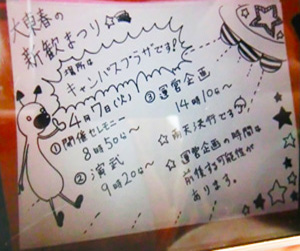 大東春の
新歓まつり☆
場所は
キャンパスプラザです!
4月7日(火)
①開催セレモニー
8時50分〜
②演武
9時20分〜
③運営企画
14時10分〜
☆雨天決行です
☆運営企画の時間は
前後する可能性が
あります。